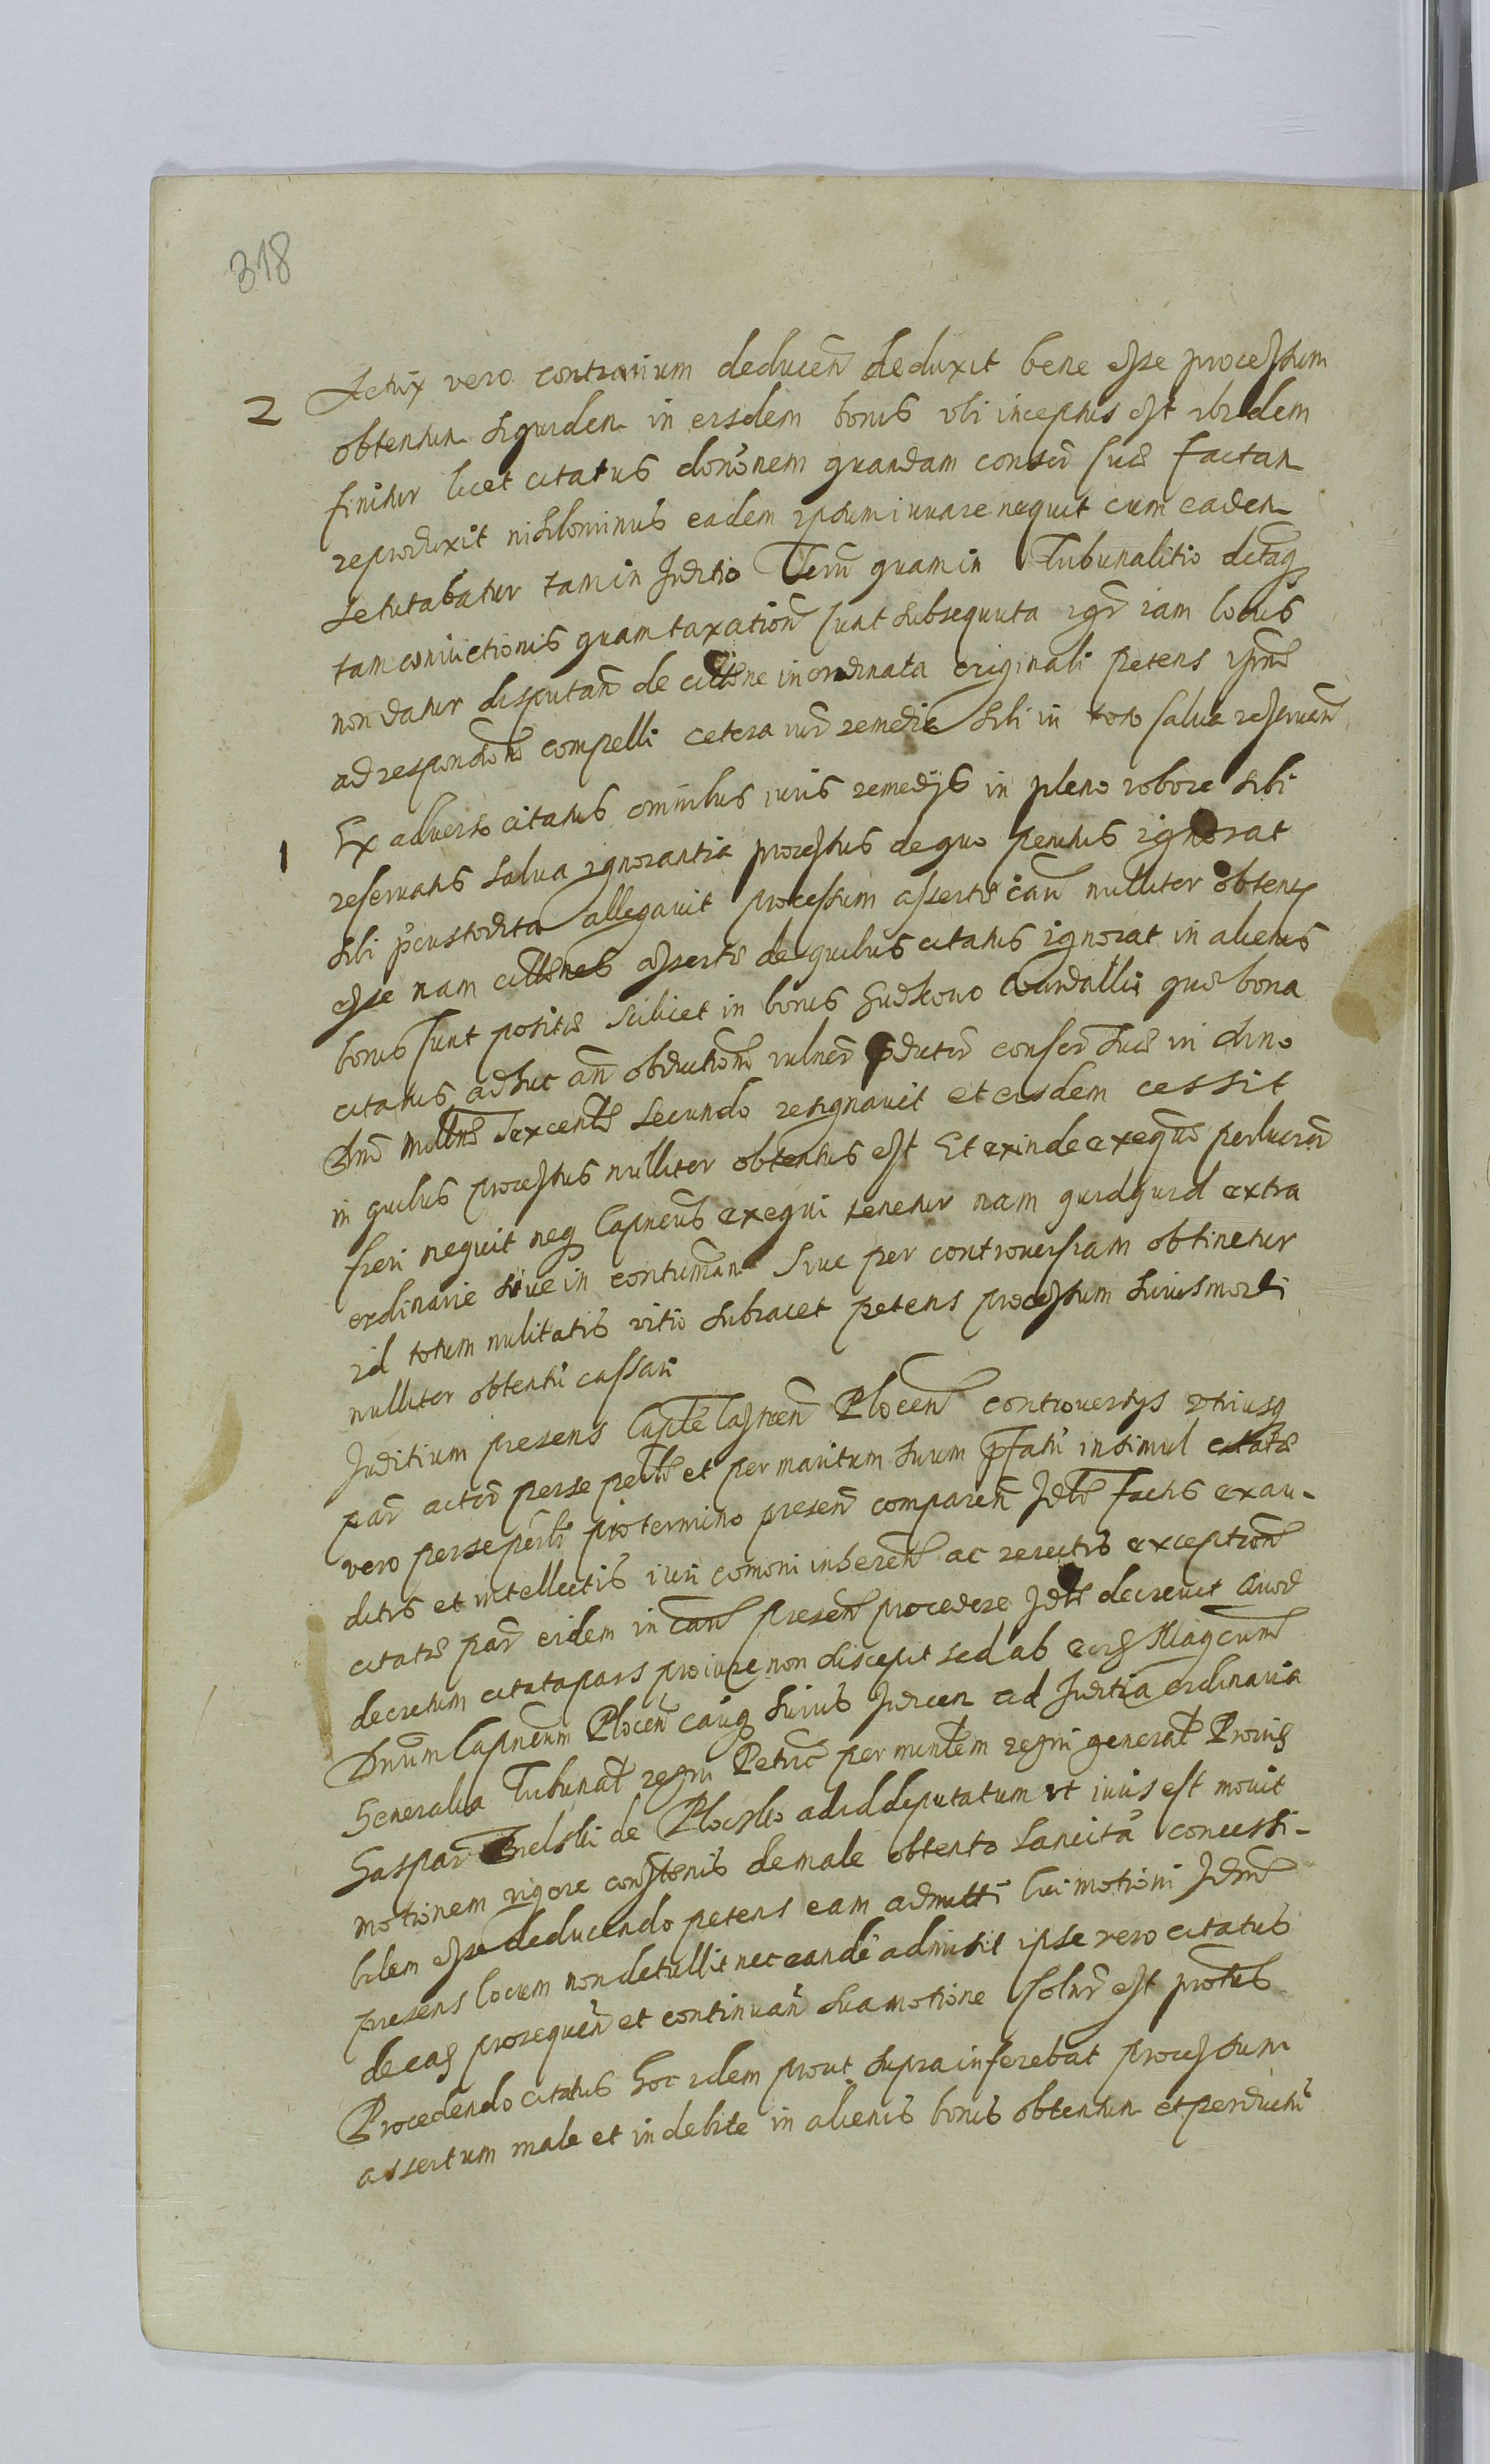 318
2 Actrix vero contrarium deducen deduxit bene esse processum
obtentum siquidem in eisdem bonis vbi inceptus est ibidem
finitur licet citatus dononem quandam consor suae factam
reproduxit nihilominus eadem ipsum iuuare nequit cum eadem
se tutabatur tam in Juditio Terrī quam in Tribunalitio
tam conuictionis quam taxation sunt subsequuta igr iam locus
non datur disputan de citone inordinata originali petens ipm
ad respondon compelli cetera iur remedia sibi in toto salua reseruan
1 Ex aduerso citatus omnibus iuris remedijs in pleno robore sibi
reseruatis salua ignorantia processus de quo penitus ignorat
sibi pcustodita allegauit processum assertū cau nulliter obtent
esse nam citones assertae de quibus citatus ignorat in alienis
bonis sunt positae scilicet in bonis Gudkouo quae bona
citatus adhuc an obductionem vulner consor suae in Anno
Dni millmo sexcentmo secundo resignauit et eisdem cessit
in quibus processus nulliter obtentus est Et exinde per lucror
fieri nequit neq Capneus exequi tenetur nam quidquid extra
ordinarie siue in contuman siue per controuersiam obtinetur
id totum nulitatis vitio subiacet petens processum huiusmodi
nulliter obtentū cassari
Juditium presens Capte Castren Plocen controuersys vtriusq
par actor per se perlr et per maritum suum pfatū insimul citatae
vero per se perlr pro termino presen comparen Jdte factis exau-
ditis et intellectis iuri comoni inheren ac reiectis exception
citatae par eidem in cau presen procedere Jdte decreuit Quod
decretum citata pars pro iure non discepit sed ab eo Magcum
Dnum Capneum Plocen eiusq huius Jurcen ad Juditia ordinaria
Generalia Tribunal regni Petric per mintlem regni general Prouis
Gaspar de Plocsko ad id deputatum vt iuris est mouit
motionem vigore constonis de male obtento sancitā concessi-
bilem esse deducendo petens eam admitti Cui motioni Jdm
presens locum non detullit nec eandē admisit ipse vero citatus
de eas prosequen et continuan sua motione solnr est protus
Procedendo citatus hoc idem prout supra inferebat processum
assertum male et indebite in alienis bonis obtentum et perductū